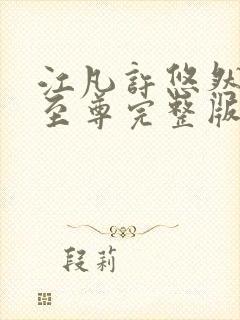 江凡許悠然
至尊完整版
段莉